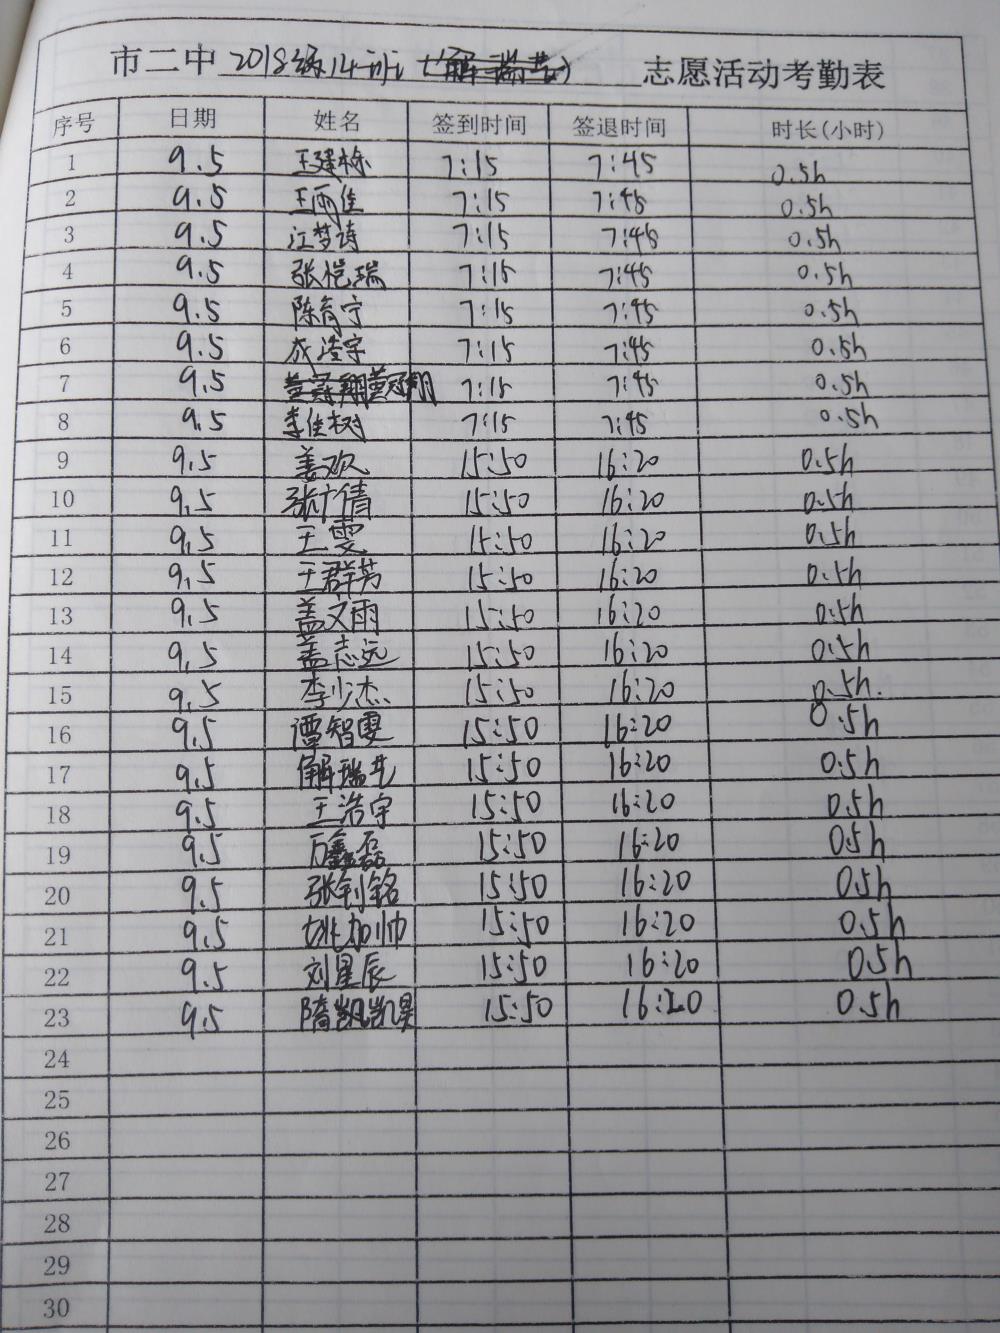 市二中 2018级14班 (解瑞艺) 志愿活动考勤表
序号 日期 姓名 签到时间 签退时间 时长(小时)
1 9.5 王建栋 7:15 7:45 0.5h
2 9.5 王雨佳 7:15 7:45 0.5h
3 9.5 江梦诗 7:15 7:45 0.5h
4 9.5 张恺瑞 7:15 7:45 0.5h
5 9.5 陈育宁 7:15 7:45 0.5h
6 9.5 成浩宇 7:15 7:45 0.5h
7 9.5 董冠翔 7:15 7:45 0.5h
8 9.5 李佳树 7:15 7:45 0.5h
9 9.5 姜欢 15:50 16:20 0.5h
10 9.5 张广倩 15:50 16:20 0.5h
11 9.5 王雯 15:50 16:20 0.5h
12 9.5 王群芳 15:50 16:20 0.5h
13 9.5 盖又雨 15:50 16:20 0.5h
14 9.5 盖志远 15:50 16:20 0.5h
15 9.5 李少杰 15:50 16:20 0.5h.
16 9.5 谭智雯 15:50 16:20 0.5h
17 9.5 解瑞艺 15:50 16:20 0.5h
18 9.5 王浩宇 15:50 16:20 0.5h
19 9.5 万鑫磊 15:50 16:20 0.5h
20 9.5 张钊铭 15:50 16:20 0.5h
21 9.5 姚加帅 15:50 16:20 0.5h
22 9.5 刘星辰 15:50 16:20 0.5h
23 9.5 隋凯昊 15:50 16:20 0.5h
24
25
26
27
28
29
30